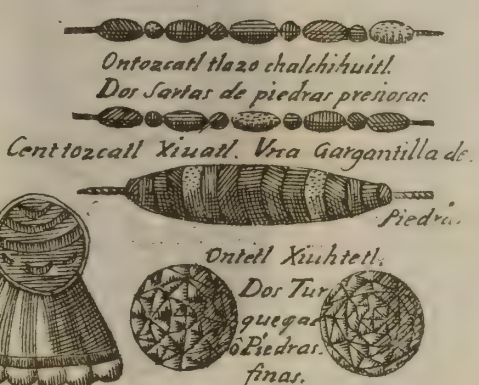 Ontozcatl tlazo chalchihuitl.
Dos Sartas de piedras presiosas.
Centtozcatl Xiuatl. Vna Gargantilla de
Piedra.
Ontetl Xiuhtetl.
Dos Tur
quezas
ô Piedras
finas.